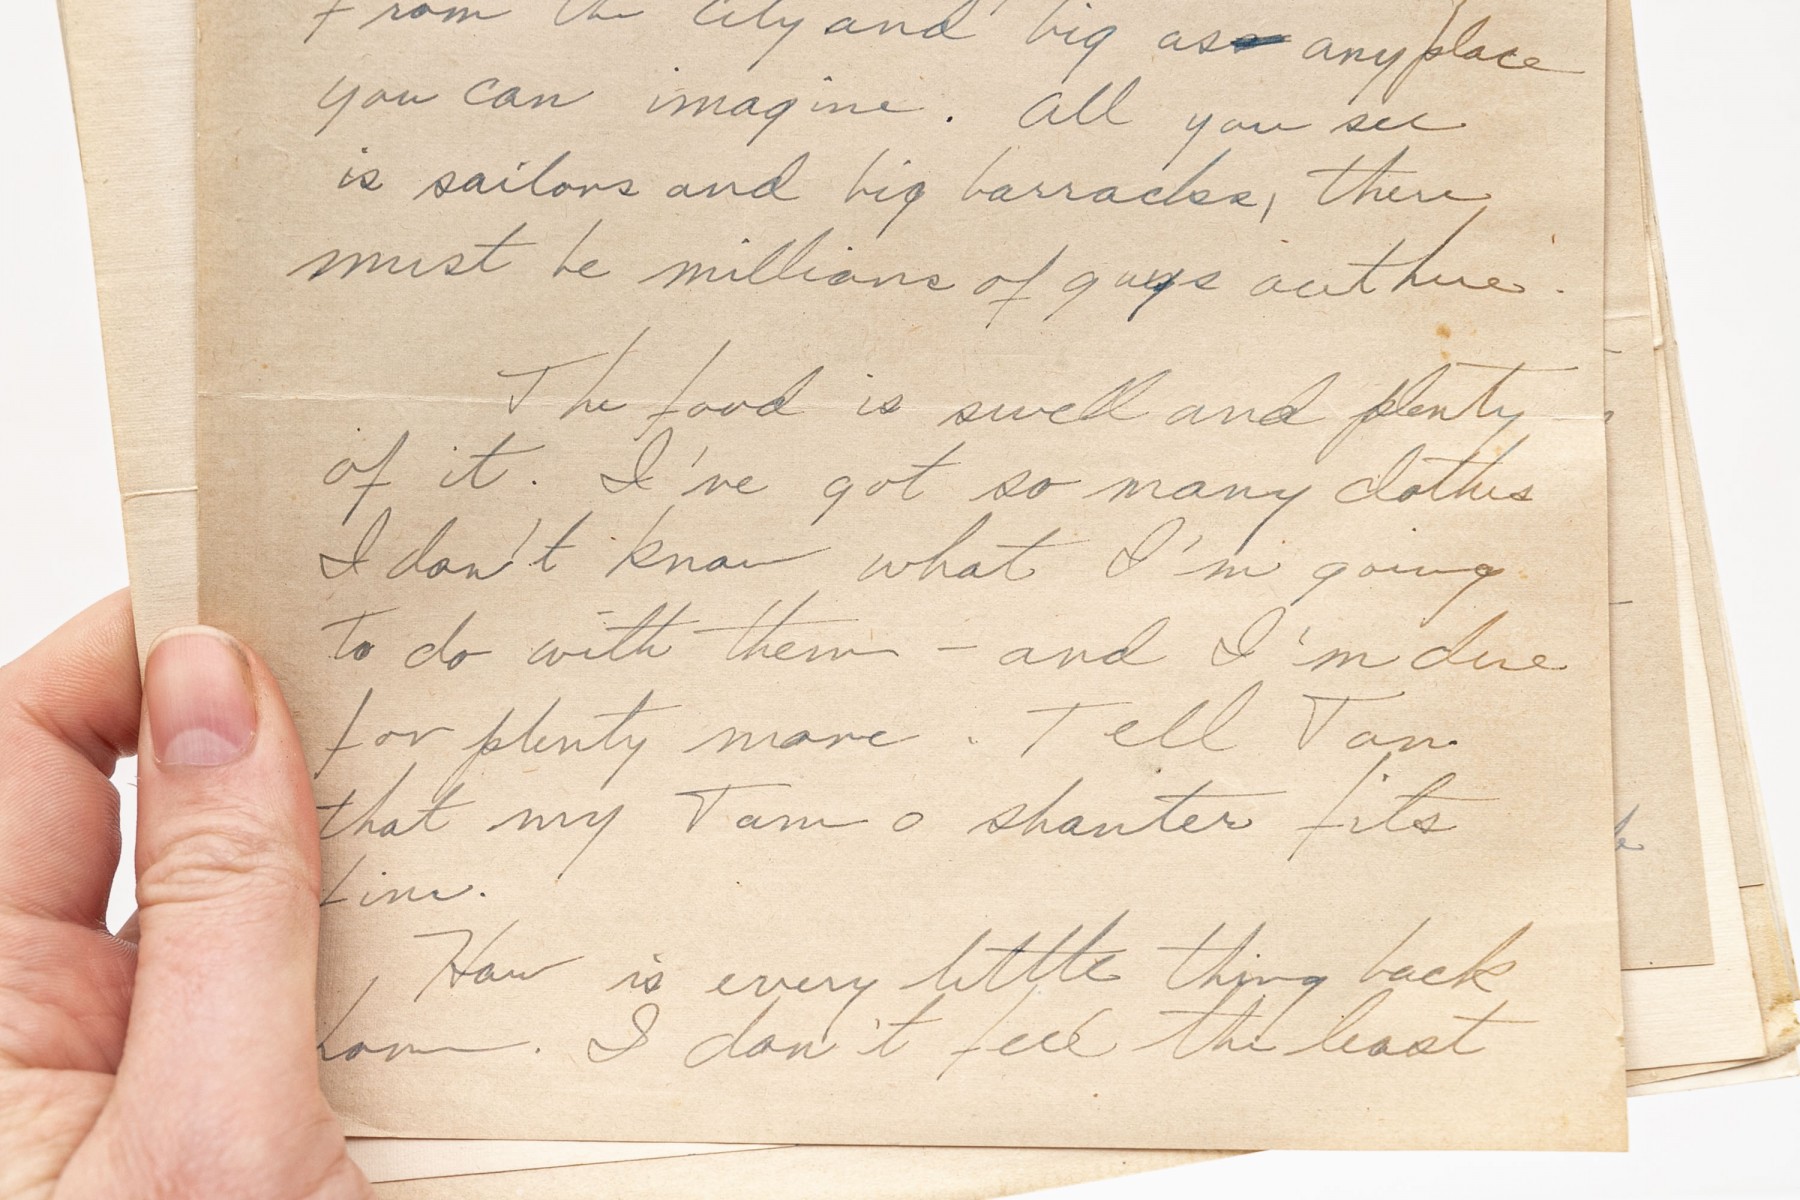 From the city and big as any place
you can imagine. All you see
is sailors and big barracks, there
must be millions of guys out here.
The food is swell and plenty
of it. I've got so many clothes
I don't know what I'm going
to do with them - and I'm due
for plenty more. Tell Tom
that my Tam o shanter fits
fine.
How is every little thing back
home. I don't feel the least